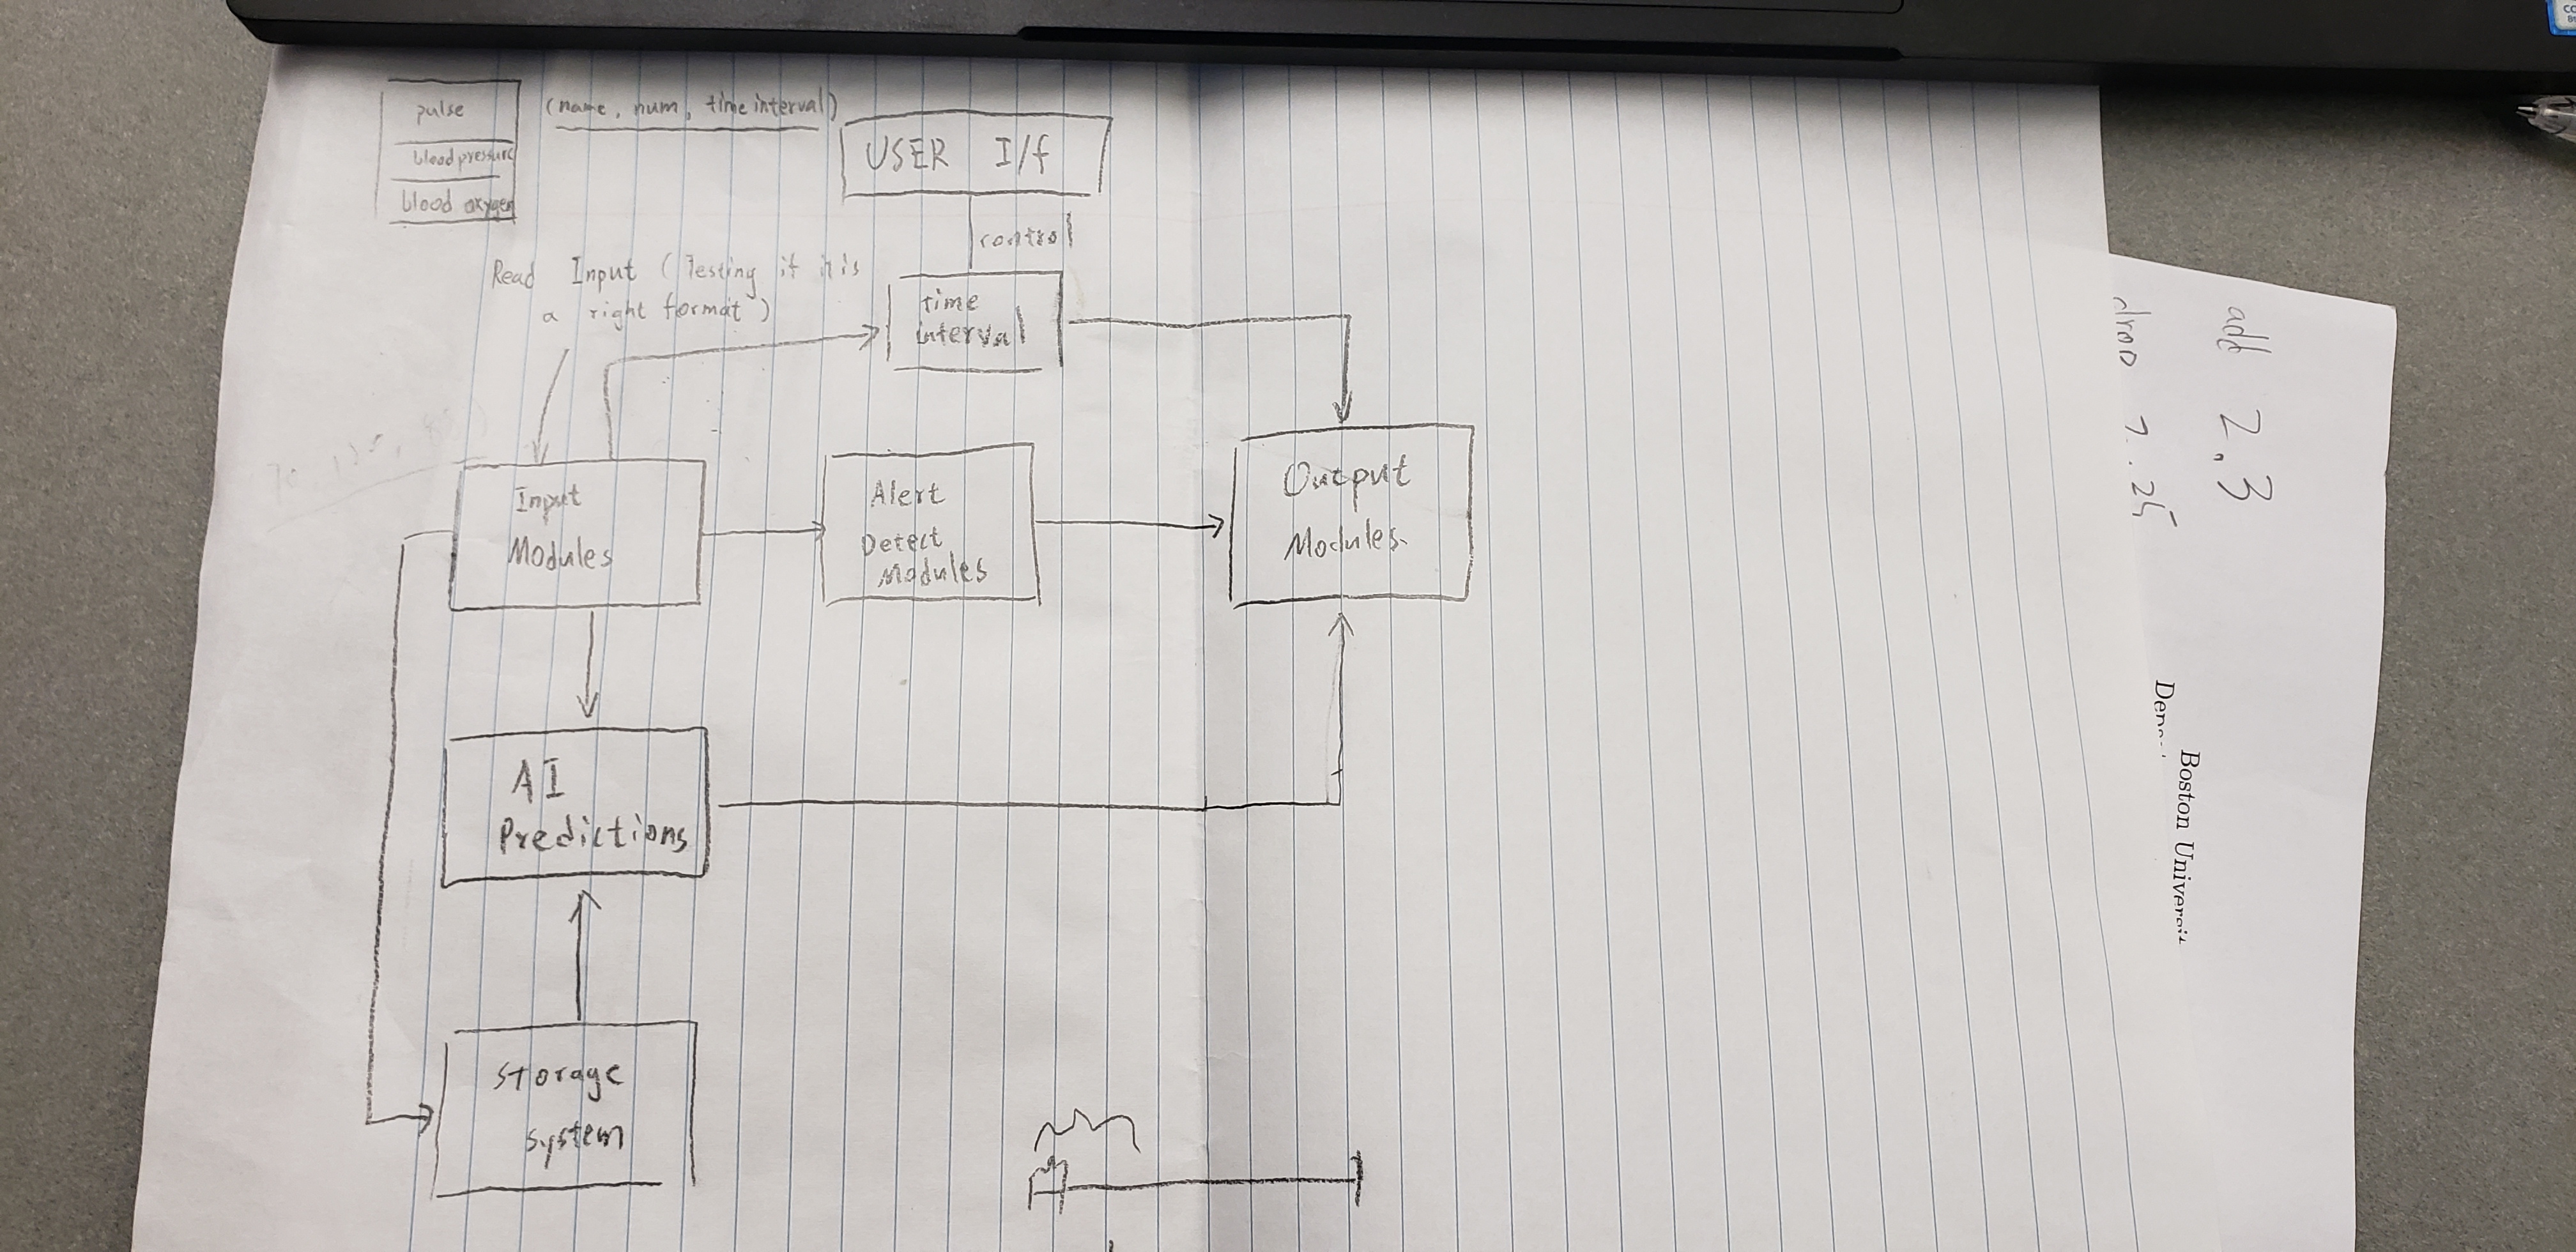 pulse
blood pressure
blood oxygen
(name, num, time interval)
USER I/f
control
Read Input (Testing if it is
a right format)
time
interval
Input
Modules
Alert
Detect
Modules
Output
Modules.
AI
Predictions
Storage
System
drop 7.25
add 2.3
Boston